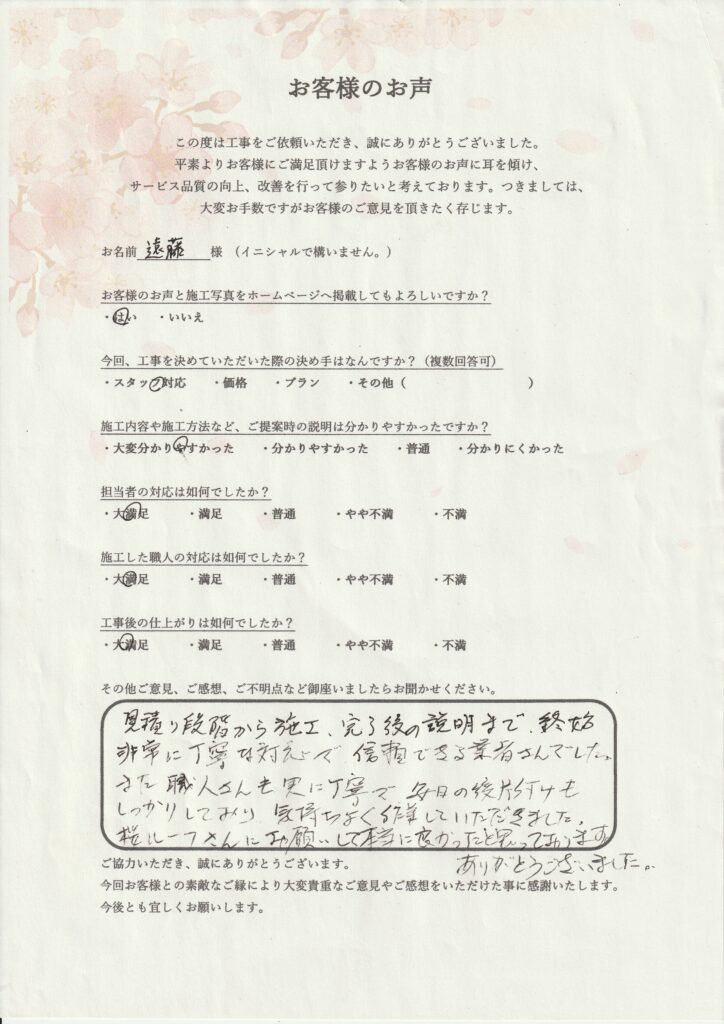 お客様のお声
この度は工事をご依頼いただき、誠にありがとうございました。
平素よりお客様にご満足頂けますようお客様のお声に耳を傾け、
サービス品質の向上、改善を行って参りたいと考えております。つきましては、
大変お手数ですがお客様のご意見を頂きたく存じます。
お名前 遠藤 様 （イニシャルで構いません。）
お客様のお声と施工写真をホームページへ掲載してもよろしいですか？
・はい ・いいえ
今回、工事を決めていただいた際の決め手はなんですか？（複数回答可）
・スタッフ対応 ・価格 ・プラン ・その他（ ）
施工内容や施工方法など、ご提案時の説明は分かりやすかったですか？
・大変分かりやすかった ・分かりやすかった ・普通 ・分かりにくかった
担当者の対応は如何でしたか？
・大満足 ・満足 ・普通 ・やや不満 ・不満
施工した職人の対応は如何でしたか？
・大満足 ・満足 ・普通 ・やや不満 ・不満
工事後の仕上がりは如何でしたか？
・大満足 ・満足 ・普通 ・やや不満 ・不満
その他ご意見、ご感想、ご不明点など御座いましたらお聞かせください。
見積り段階から施工、完了後の説明まで、終始
非常に丁寧な対応で 信頼できる業者さんでした。
また 職人さんも実に丁寧で 毎日の後片付けも
しっかりしており 気持ちよく作業していただきました。
桜ルーフさんにお願いして本当に良かったと思っております
ありがとうございました。
ご協力いただき、誠にありがとうございます。
今回お客様との素敵なご縁により大変貴重なご意見やご感想をいただけた事に感謝いたします。
今後とも宜しくお願いします。